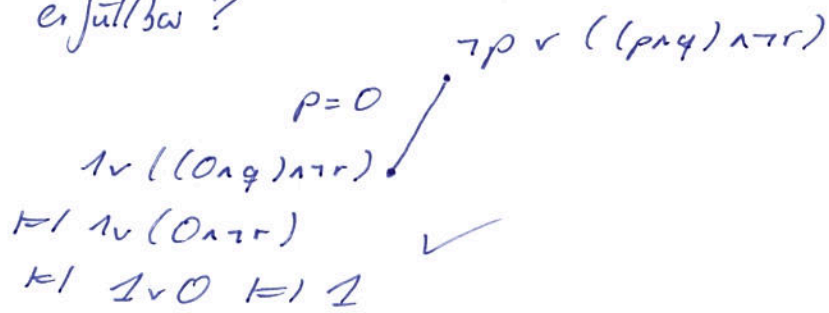 erfüllbar ?
¬p ∨ ((p∧q)∧¬r)
p = 0
1∨((0∧q)∧¬r)
⊨| 1∨(0∧¬r)
⊨| 1∨0 ⊨| 1